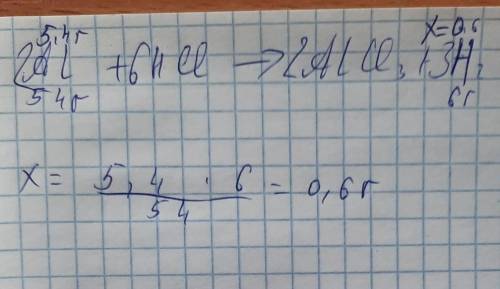 5,4г х=0,6
2Al + 6HCl → 2AlCl₃ + 3H₂
54г 6г
х = 5,4 · 6 / 54 = 0,6г